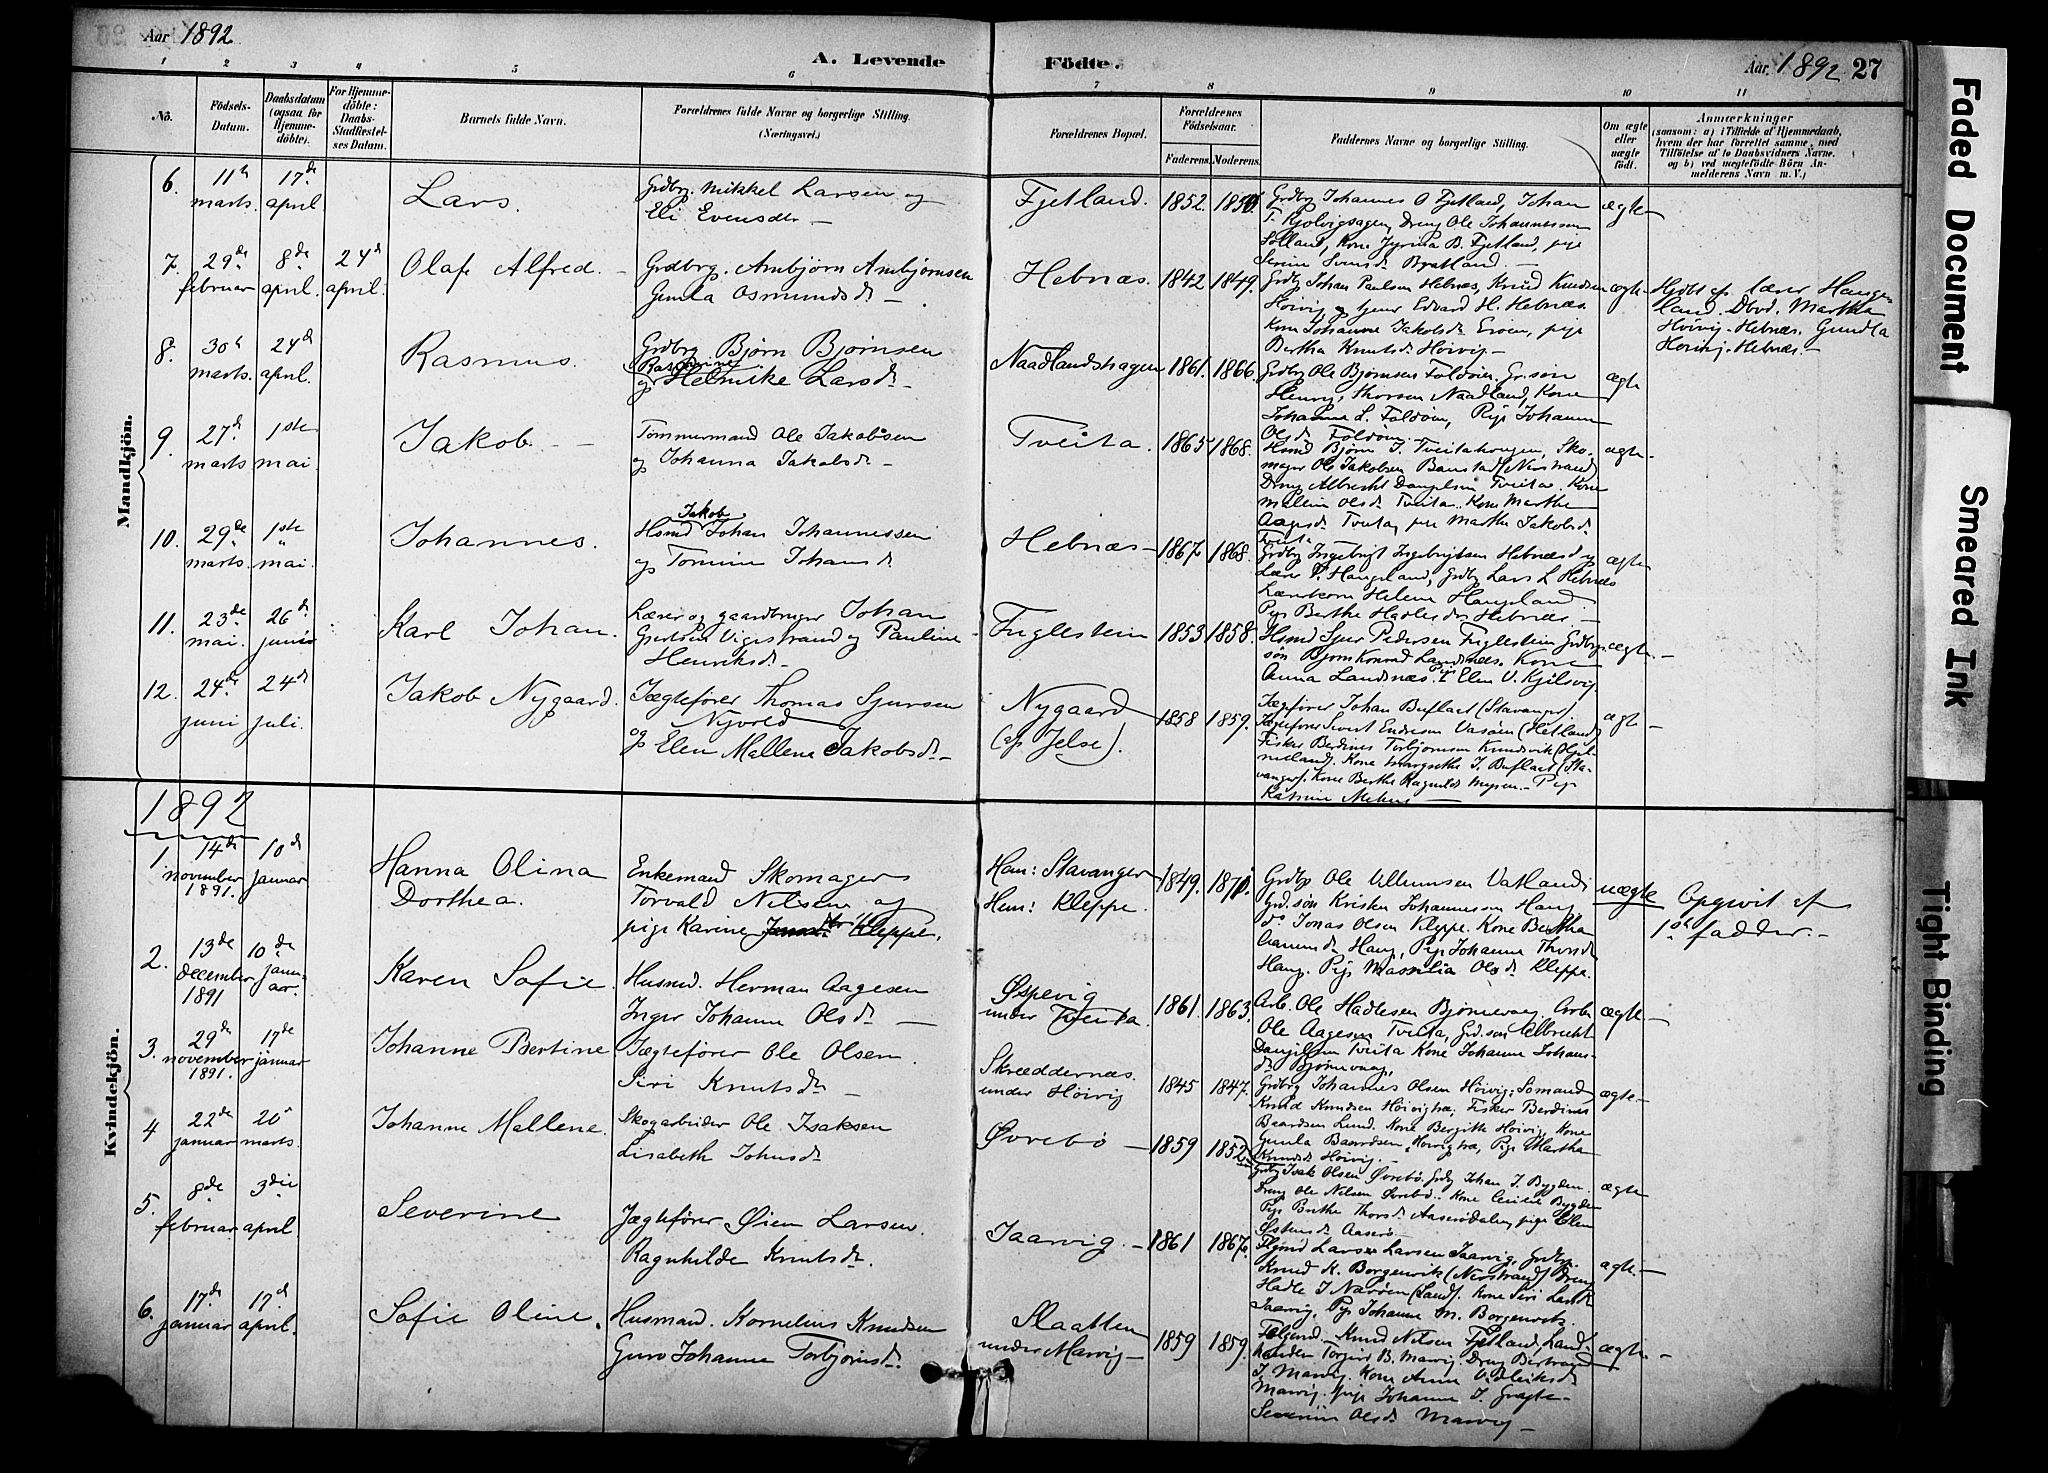 Aar 1892
A. Levende Födte.
Aar 1892 27
1 2 3 4 5 6 7 8 9 10 11
No.
Födsels-Datum.
Daabsdatum (ogsaa for Hjemme-döbte).
For Hjemme-döbte: Daabs-Stadfæstel-ses Datum.
Barnets fulde Navn.
Forældrenes fulde Navne og borgerlige Stilling. (Næringsvei.)
Forældrenes Bopæl.
Forældrenes Födselsaar.
Faderens. Moderens.
Faddernes Navne og borgerlige Stilling.
Om ægte eller uægte födt.
Anmærkninger
(saasom: a) i Tilfælde af Hjemmedaab, hvem der har forrettet samme, med Tilföielse af to Daabsvidners Navne. og b) ved uægtefödte Börn An-melderens Navn m. V.)
Mandkjön.
6. 11te marts. 17de april Lars.
Grdbrg. Mikkel Larsen og
Eli Evensdr —
Fjetland. 1852.
Grdbrg Johannes O Fjetland, Johan
Dreng Ole Johannessen
ægte
7. 29de februar 8de april. 24d april. Olaf Alfred. —
Grdbrg. Ambjørn Ambjørnsen
Gunla Osmundsd. —
Hebnæs. 1842 1849.
Grdbr Johan Paulsen Hebnæs, Knud Knudsen
Høivig, Edvard H. Hebnæs.
Kone Johanne Jakobsdr
Bertha Knutsdr Høivig —
ægte
Hjdbt af lærer Hauge-
land. Dbvd. Martha
Høivig. Hebnæs. Gundla
Høivig. Hebnæs. —
8. 30te marts. 24d april. Rasmus.
Grdbrg Bjørn Bjørnsen
og Helmike Larsd. —
Naadlandshagen 1861. 1866.
Grdbrg Ole Bjørnsen Foldøen. Gr.søn
Henrik Thorsen Naadland, Kone
Johanne L. Foldøen, Pige Johanne
Olsdr Foldøen.
ægte
9. 27d marts 1ste mai Jakob. —
Tømmermand Ole Jakobsen
og Johanna Jakobsd. —
Tveita. 1865 1868.
Hsmd Bjørn J. Tveitahougen, Sko-
mager Ole Jakobsen Baustad (Nerstrand)
Dreng Albrecht Danielsen Tveita. Kone
Mallene Olsd. Tveita. Kone Marthe
Aagesd. Tveita, pige Marthe Jakobsd.
Tveita
ægte
10. 29de marts. 1ste mai. Johannes.
Jakob
Hsmd Johan Johannessen
og Tomine Johansd.
Hebnæs — 1867 1868.
Grdbrg Ingebrigt Ingebrigtsen Hebnæs og
Lærer T. Haugeland, Grdbrg Lars L Hebnæs
Lærerkone Helene Haugeland.
Pige Berthe Hadlesdr Hebnæs. —
ægte
11. 23de mai. 26d. junio Karl Johan.
Læser og gaardbruger Johan
Gjertsen Vigestrand og Pauline
Henriksd. —
Fuglestein 1853 1858.
Hsmd Sjur Pedersen Fuglestein Grdbrgs
søn Bjørn Konrad Landsnæs. Kone
Anna Landsnæs. Pige Elen V. Kjilsvig.
ægte. —
12. 24de juni 24d juli. Jakob Nygaard.
Jægtefører Thomas Sjursen
Nyvold
og Elen Mallene Jakobsd. —
Nygaard
(af Jelse).
1858 1859.
Jægtfører Johan Buflaat (Stavanger)
Jægtefører Sivert Endresen Vasøen (Hetland)
Fisker Berdines Torbjørnsen Knudsvik
Kone Margrethe J. Buflaat (Sta-
vanger). Kone Berthe Ragnilde — Pige
ægte —
1892
Kvindekjön.
1. 14de november 1891. 10d januar Hanna Olina
Dorthea.
Enkemand Skomager
Torvald Nilsen og
pige Karine Kleppe.
Ham: Stavanger
Hun: Kleppe.
1849.
Grdbrg Ole Villumsen Vatland
Grd.søn Kristen Johannessen Haug
do Jonas Olsen Kleppe. Kone Bertha
Haug, Pige Johanne Thorsd
Haug. Pige Massilia Olsd. Kleppe.
uægte
Opgivet af
1ste fadder. —
2. 13de december 1891 10de januar. Karen Sofie.
Husmd. Herman Aagesen
Inger Johanne Olsd. —
Øspevig
under Tveita.
1861. 1863.
Arb. Ole Hadlesen Bjørnevaag. Arb.
Ole Aagesen Tveita, Grd.søn Albrecht
Danielsen Tveita Kone Johanne Johans-
d. Bjørnevaag,
ægte. —
3. 29de november 1891. 17de januar Johanne Bertine
Jægtefører Ole Olsen
Siri Knutsd. —
Skræddernæs.
under Høivig
1845 1847.
Grdbrg Johannes Olsen Høivig, Sømand
Knud Knudsen Høivigtræ. Fisker Berdines
Baardsen Lund. Kone Bergitte Høivig. Kone
Gunla Baardsen, Høivigtræ, Pige Martha
Knutsdr Høivig. —
ægte —
4 22de januar 20d marts. Johanne Mallene.
Skogarbeider Ole Isaksen
Lisabeth Johnsd.
Øvrebø — 1859 1852
Grdbr Isak Olsen Øvrebø. Grdbrg Johan J. Bygden.
Dreng Ole Nilsen Øvrebø. Kone Cecilie Bygden
Pige Berthe Thorsd. Aaserødalen, pige Elen
Østensd. Aaserø.
ægte
5. 8de februar 3die april. Severine
Jægtefører Øien Larsen
Ragnhilde Knutsd.
Jaarvig. — 1861 1867.
Husmd Lars Larsen Jaarvig, Grdbrg.
Knud K. Borgenvik (Nerstrand) Dreng
Hadle J. Narøen (Sand). Kone Siri Larsdr
Jaarvig. Pige Johanne M. Borgenvik.
ægte. —
6. 17de januar 17d april. Sofie Oline.
Husmand. Kornelius Knudsen
Guro Johanne Torbjørnsd.
Slaatten
under Marvig —
1859 1859.
Følgmd. Knud Nilsen Fjetland, Land-
handler Torger B. Marvig. Dreng Bertrand
J. Marvig. Kone Anna
Marvig. Pige Johanne J.
Severine Olsd. Marvig —
ægte. —
Faded Document
Smeared Ink
Tight Binding